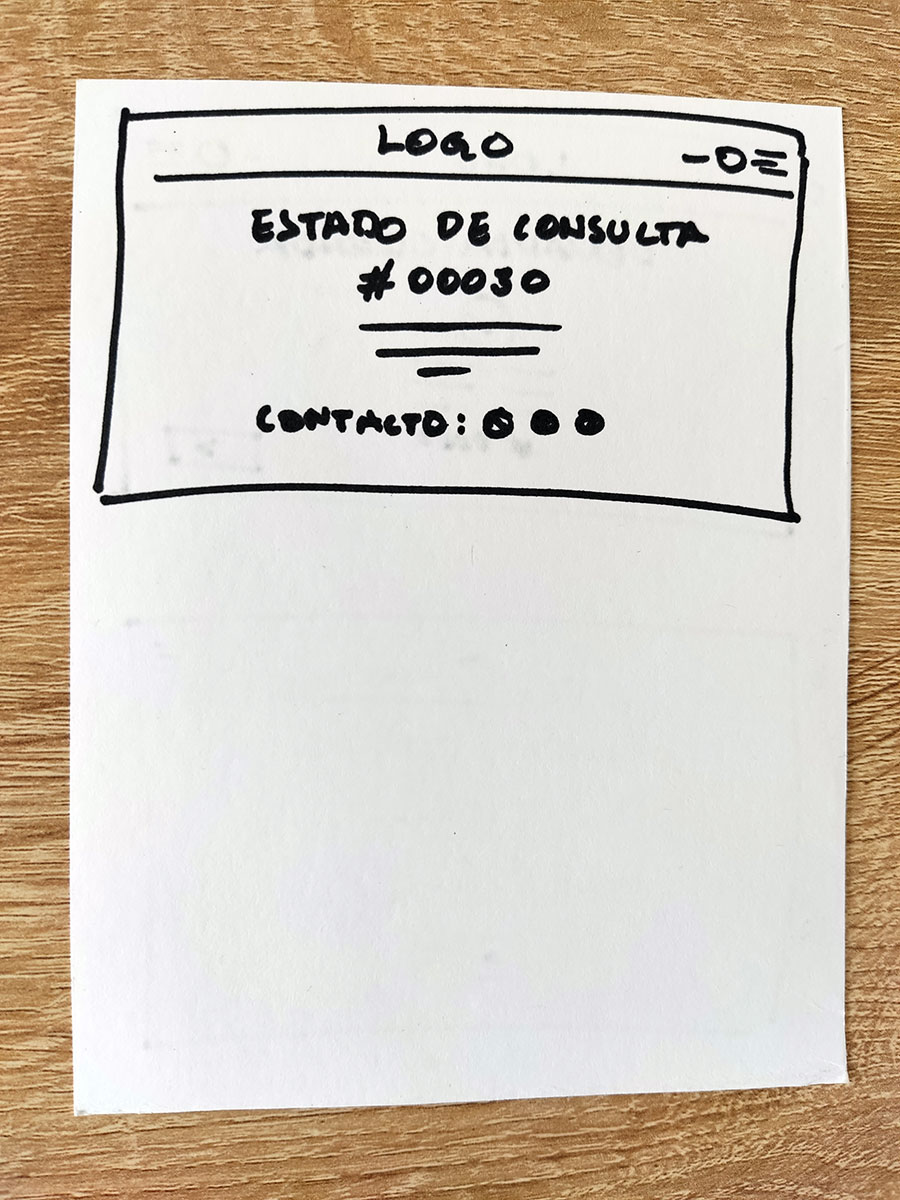 LOGO
ESTADO DE CONSULTA
#00030
CONTACTO: